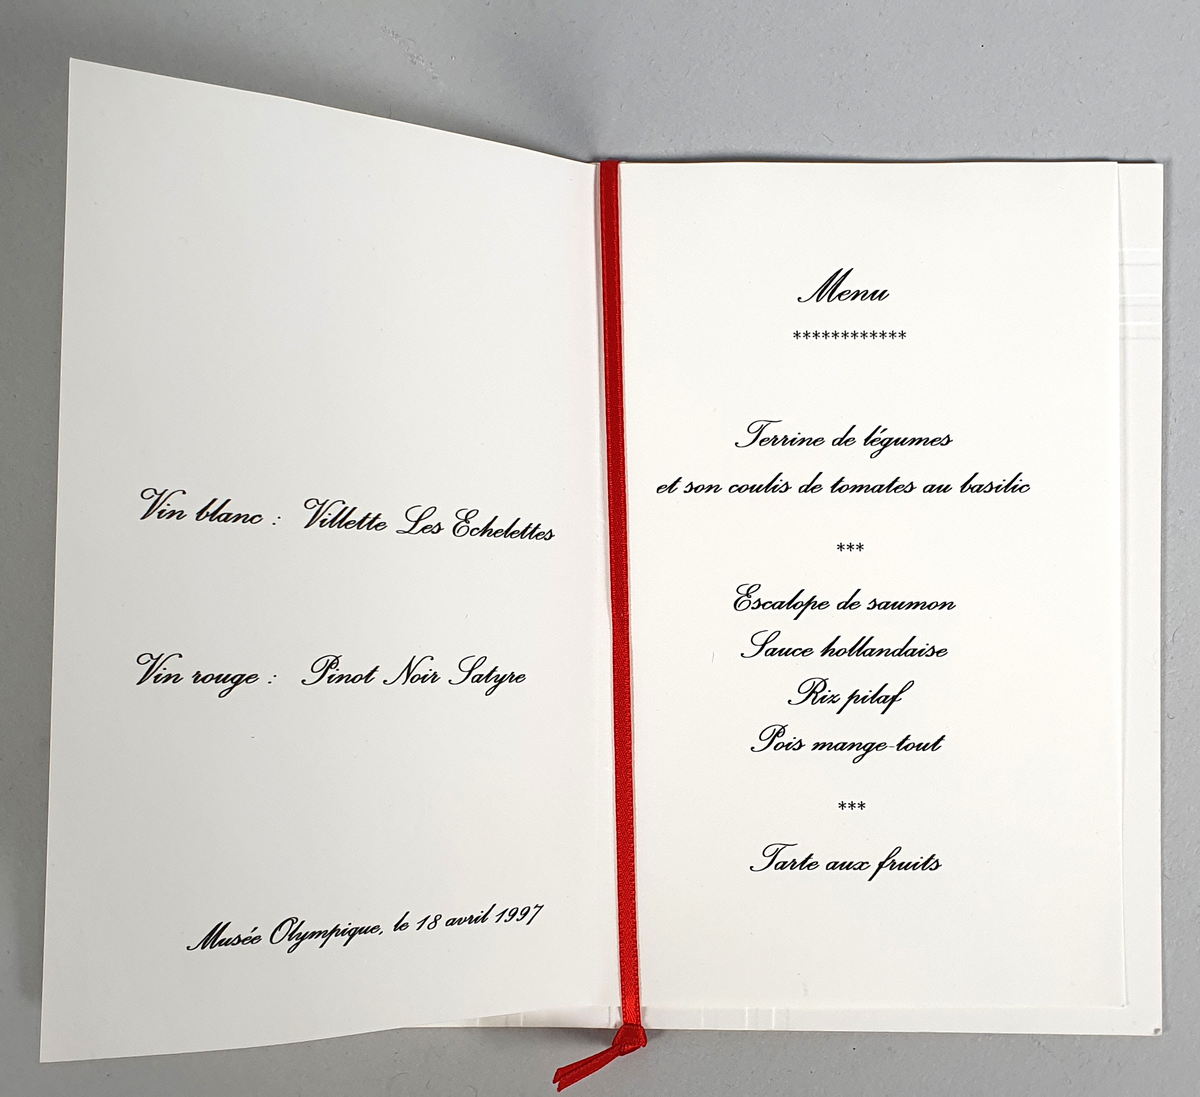 Vin blanc : Villette Les Echelettes
Vin rouge : Pinot Noir Satyre
Musée Olympique, le 18 avril 1997
Menu
************
Terrine de légumes
et son coulis de tomates au basilic
***
Escalope de saumon
Sauce hollandaise
Riz pilaf
Pois mange-tout
***
Tarte aux fruits